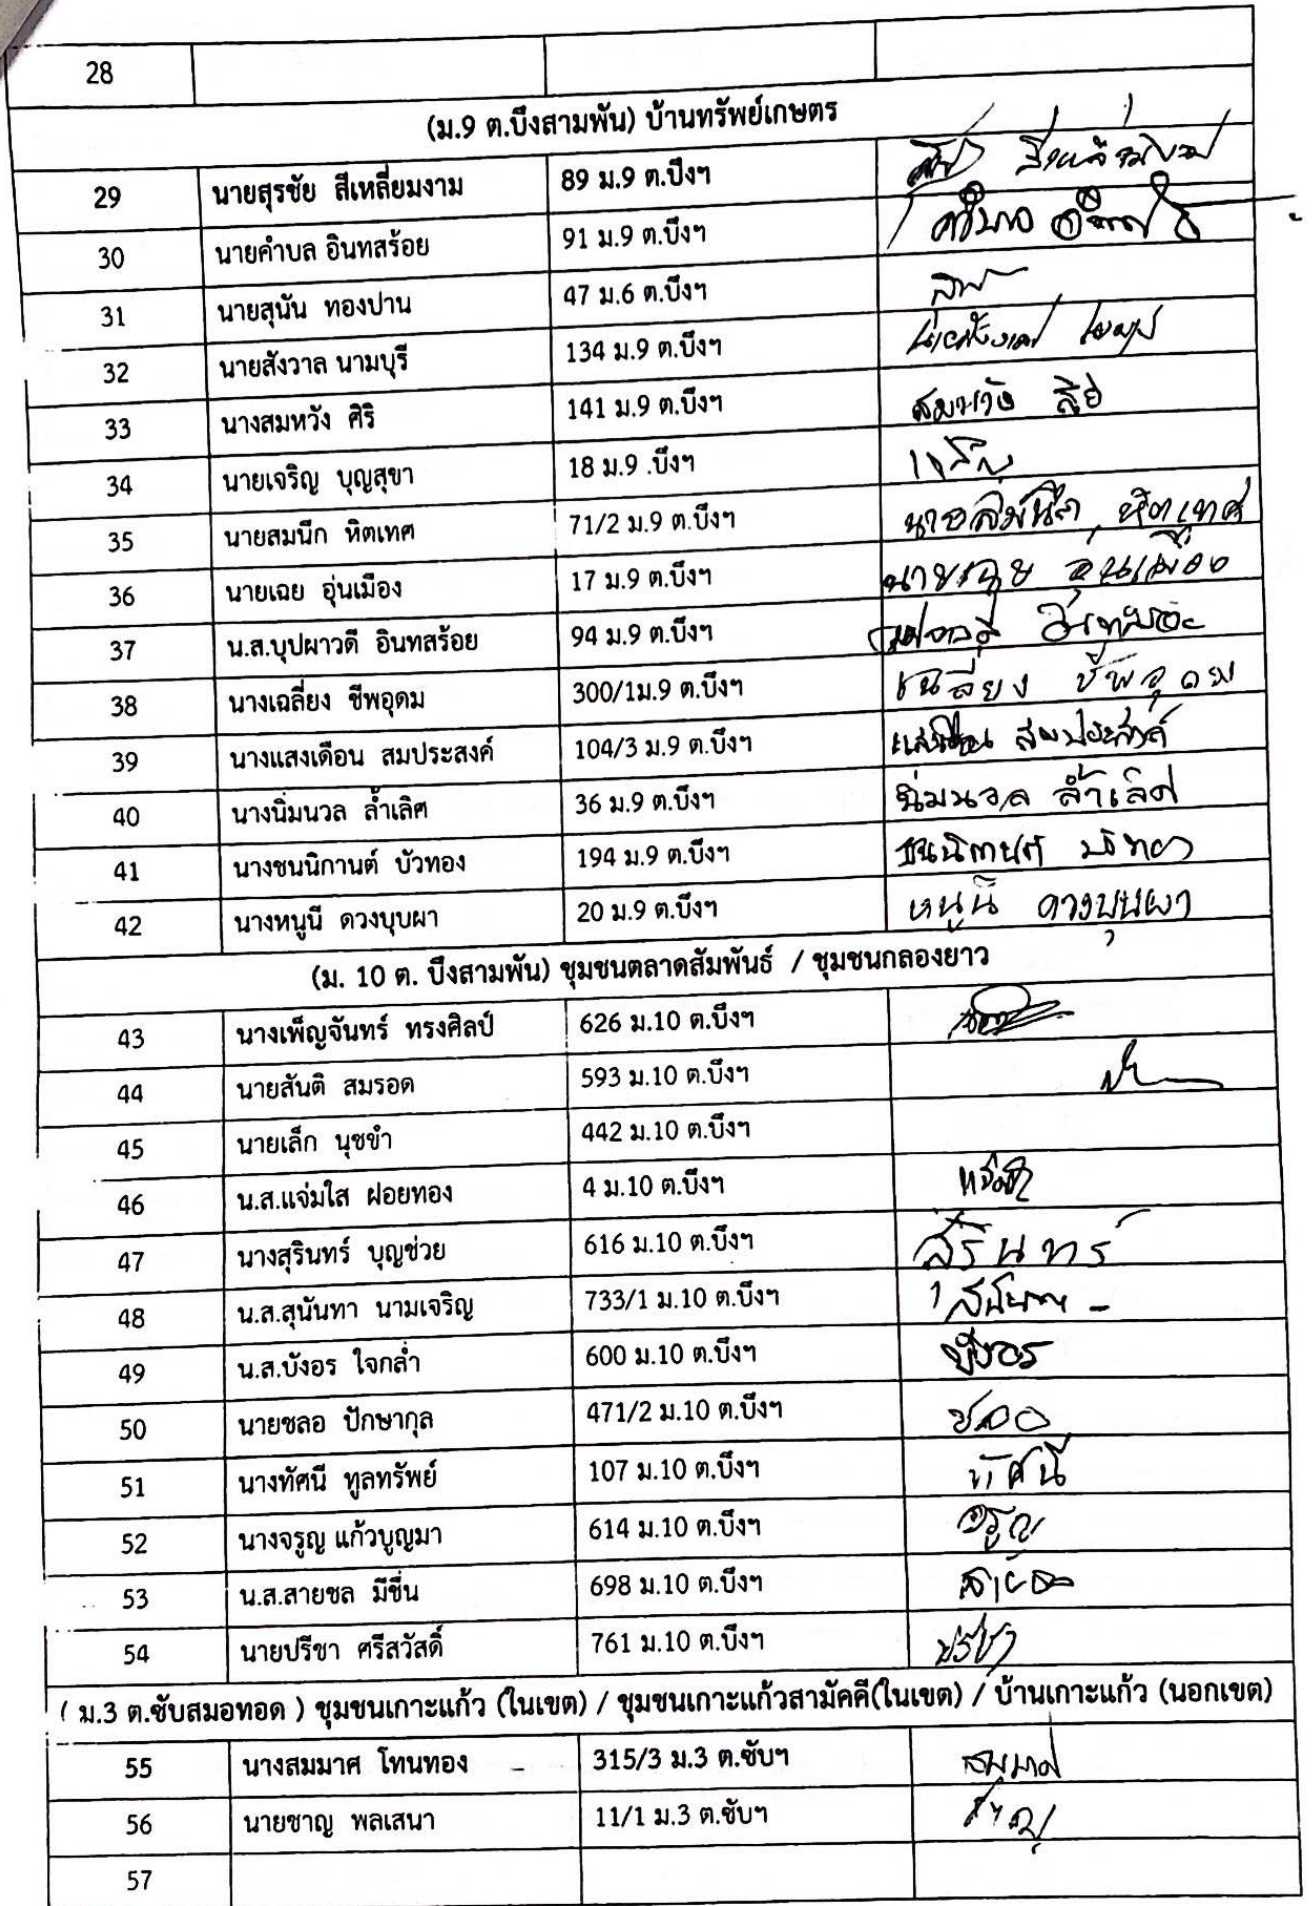 28
(ม.9 ต.บึงสามพัน) บ้านทรัพย์เกษตร
29 นายสุรชัย สีเหลี่ยมงาม 89 ม.9 ต.ปึงฯ
30 นายคำบล อินทสร้อย 91 ม.9 ต.บึงฯ
31 นายสุนัน ทองปาน 47 ม.6 ต.บึงฯ
32 นายสังวาล นามบุรี 134 ม.9 ต.บึงฯ
33 นางสมหวัง ศิริ 141 ม.9 ต.บึงฯ สมหวัง
34 นายเจริญ บุญสุขา 18 ม.9 .บึงฯ เจริญ
35 นายสมนึก หิตเทศ 71/2 ม.9 ต.บึงฯ นายสมนึก หิตเทศ
36 นายเฉย อุ่นเมือง 17 ม.9 ต.บึงฯ นายเฉย อุ่นเมือง
37 น.ส.บุปผาวดี อินทสร้อย 94 ม.9 ต.บึงฯ
38 นางเฉลี่ยง ชีพอุดม 300/1ม.9 ต.บึงฯ เฉลี่ยง ชีพอุดม
39 นางแสงเดือน สมประสงค์ 104/3 ม.9 ต.บึงฯ แสงเดือน สมประสงค์
40 นางนิ่มนวล ล้ำเลิศ 36 ม.9 ต.บึงฯ นิ่มนวล ล้ำเลิศ
41 นางชนนิกานต์ บัวทอง 194 ม.9 ต.บึงฯ ชนนิกานต์ บัวทอง
42 นางหนูนี ดวงบุบผา 20 ม.9 ต.บึงฯ หนูนี ดวงบุบผา
(ม. 10 ต. บึงสามพัน) ชุมชนตลาดสัมพันธ์ / ชุมชนกลองยาว
43 นางเพ็ญจันทร์ ทรงศิลป์ 626 ม.10 ต.บึงฯ
44 นายสันติ สมรอด 593 ม.10 ต.บึงฯ
45 นายเล็ก นุชขำ 442 ม.10 ต.บึงฯ
46 น.ส.แจ่มใส ฝอยทอง 4 ม.10 ต.บึงฯ
47 นางสุรินทร์ บุญช่วย 616 ม.10 ต.บึงฯ สุรินทร์
48 น.ส.สุนันทา นามเจริญ 733/1 ม.10 ต.บึงฯ
49 น.ส.บังอร ใจกล่ำ 600 ม.10 ต.บึงฯ บังอร
50 นายชลอ ปักษากุล 471/2 ม.10 ต.บึงฯ ชลอ
51 นางทัศนี ทูลทรัพย์ 107 ม.10 ต.บึงฯ ทัศนี
52 นางจรูญ แก้วบูญมา 614 ม.10 ต.บึงฯ จรูญ
53 น.ส.สายชล มีชื่น 698 ม.10 ต.บึงฯ สายชล
54 นายปรีชา ศรีสวัสดิ์ 761 ม.10 ต.บึงฯ ปรีชา
( ม.3 ต.ซับสมอทอด ) ชุมชนเกาะแก้ว (ในเขต) / ชุมชนเกาะแก้วสามัคคี(ในเขต) / บ้านเกาะแก้ว (นอกเขต)
55 นางสมมาศ โทนทอง - 315/3 ม.3 ต.ซับฯ สมมาศ
56 นายชาญ พลเสนา 11/1 ม.3 ต.ซับฯ ชาญ
57